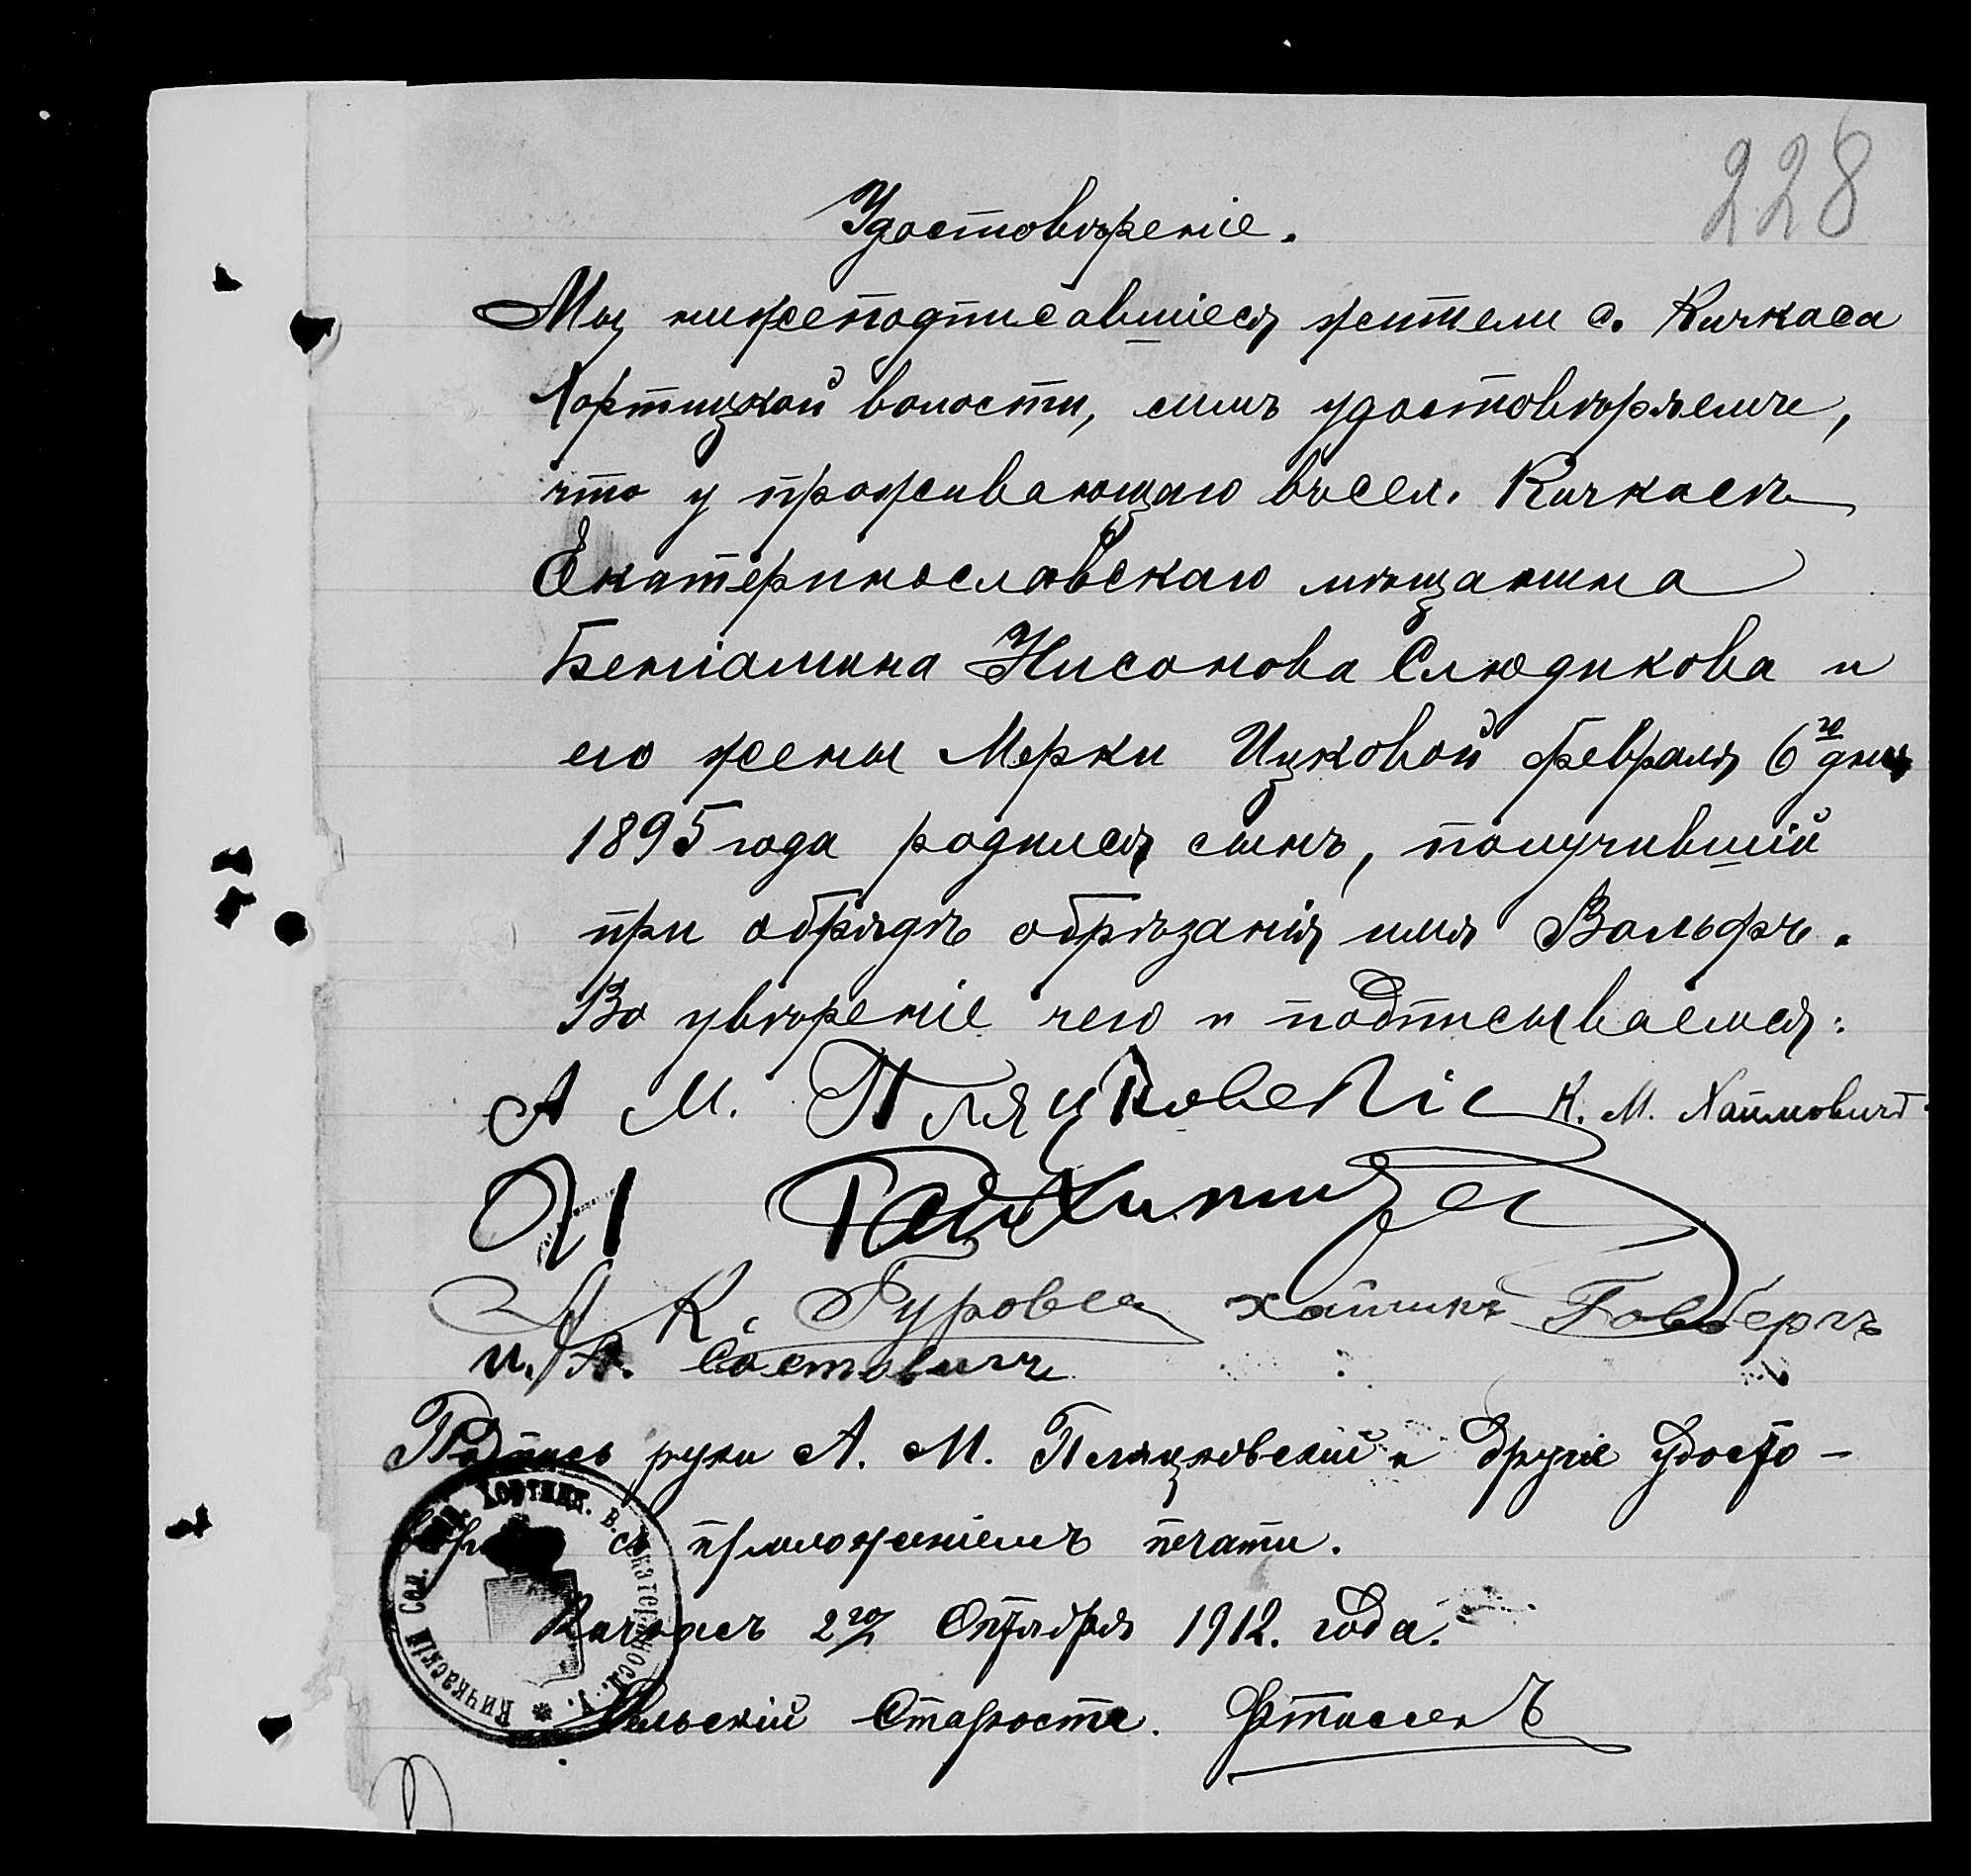 228
Удостовѣреніе.
Мы нижеподписавшіеся жители с. Кичкаса
Хортицкой волости, симъ удостовѣряемъ,
что у проживающаго въ сел. Кичкасѣ
Екатеринославскаго мѣщанина
Беніамина Нисонова Слюдикова и
его жены Мерки Ицковой февраля 6го дня
1895 года родился сынъ, получившій
при обрядѣ обрѣзанія имя Вольфъ.
Во увѣреніе чего и подписываемся:
А М. Пляцковскіс К. М. Хаимовичъ
И
А К. Гуровеа хаимъ Гольбергъ
Состовичъ
Подпись руки А. М. Пляцковскій и другіе удосто-
съ приложеніемъ печати.
Кичкасъ 2го Октября 1912. года.
Сельскій Староста.
Кичкаскій Сел. Хортицк. в. Екатеринос. г.